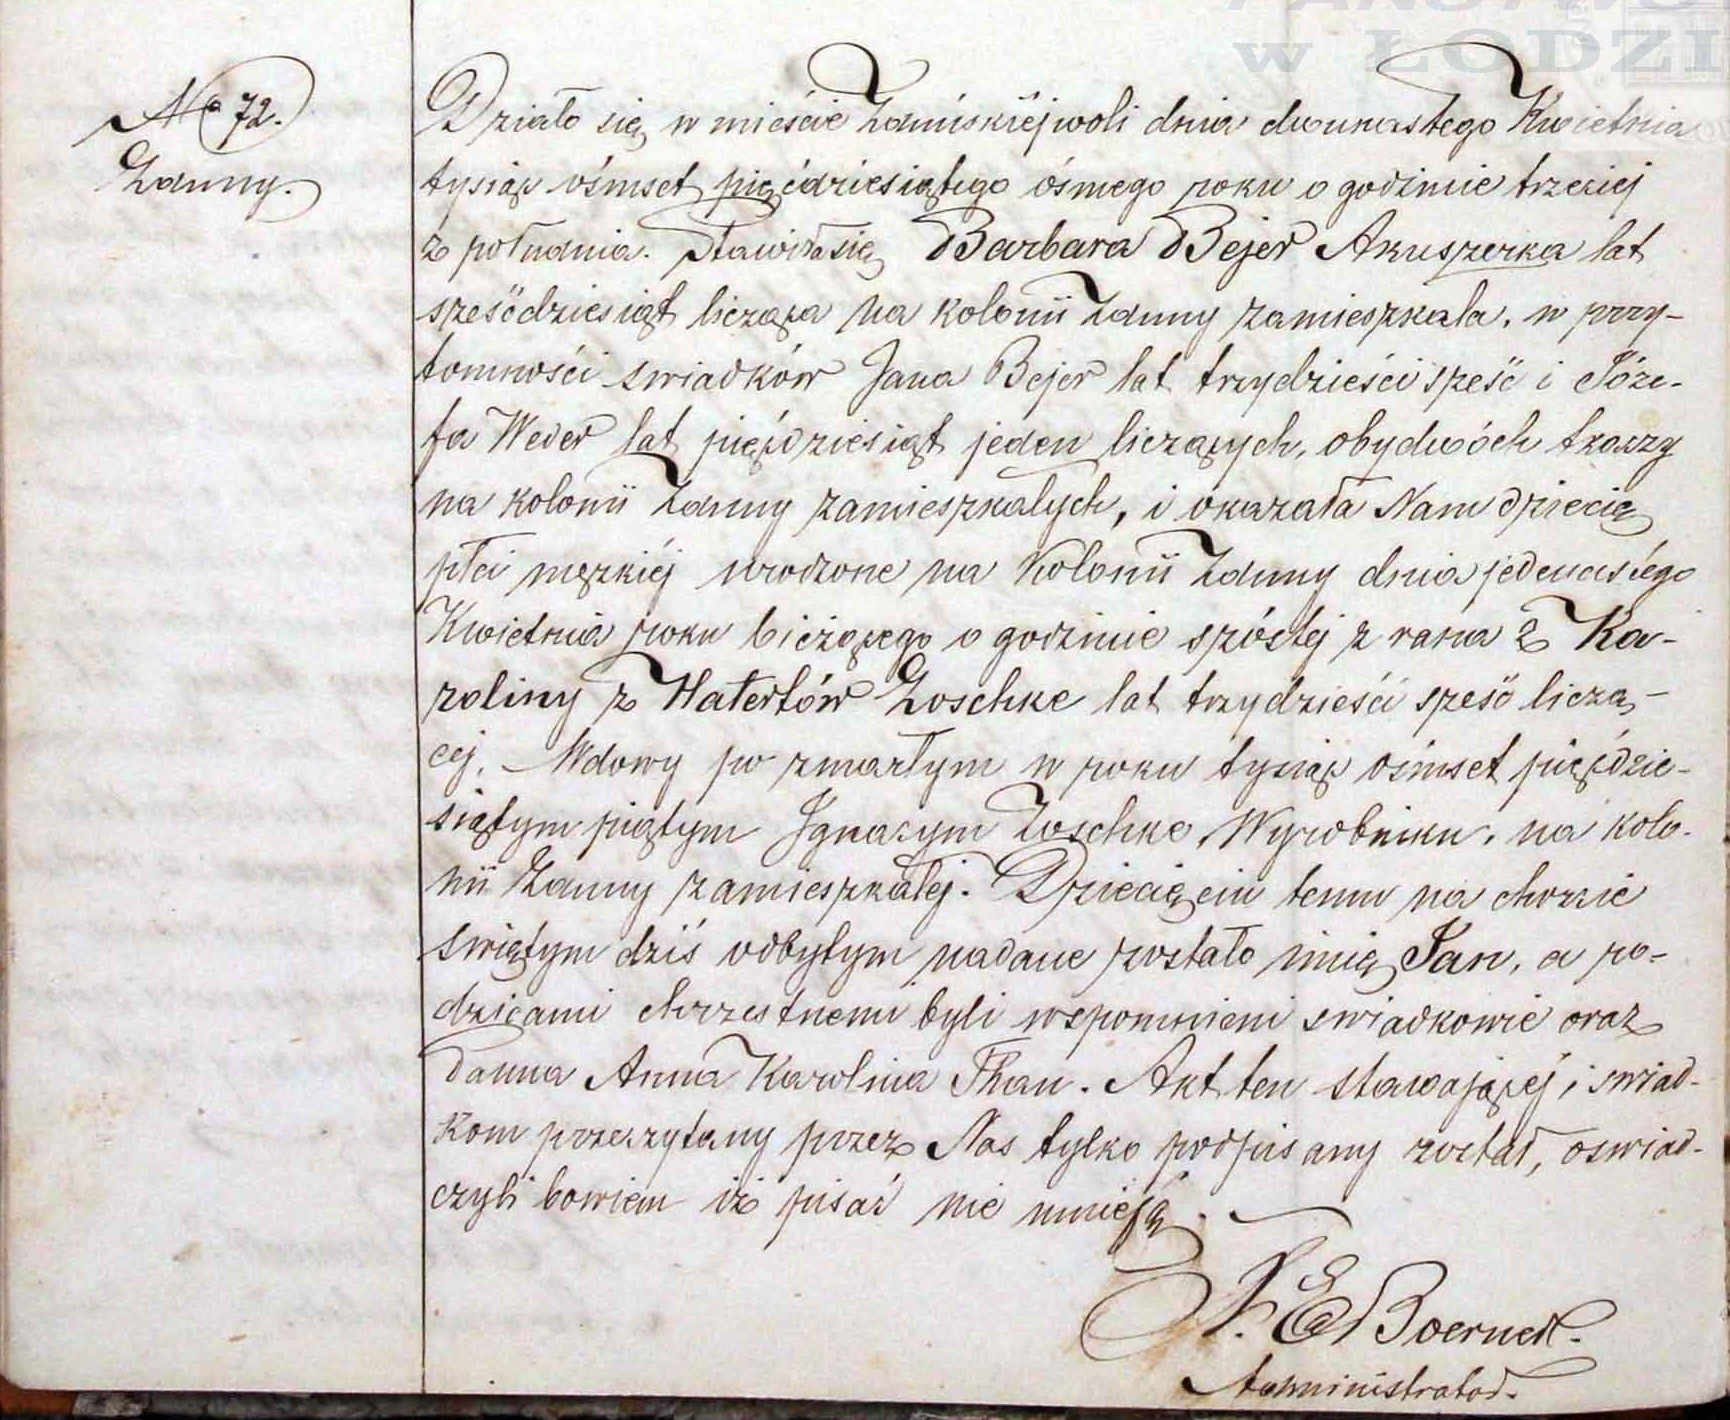 PAŃSTWO
w ŁODZI
No 72.
Zduny.
Działo się w mieście Zduńskiejwoli dnia dwunastego Kwietnia
tysiąc ośmset pięćdziesiątego ósmego roku o godzinie trzeciej
z południa. Stawiła się Barbara Bejer Akuszerka lat
sześćdziesiąt licząca na kolonii Zduny zamieszkała, w przy-
tomności swiadków Jana Bejer lat trzydzieści sześć i Józe-
fa Weber lat pięćdziesiąt jeden liczących, obydwóch tkaczy
na kolonii Zduny zamieszkałych, i okazała Nam dziecię
płci męzkiéj urodzone na Kolonii Zduny dnia jedenastego
Kwietnia roku bieżącego o godzinie szóstej z rana z Ka-
roliny z Hatertów Zoschke lat trzydzieści sześć liczą-
cej, Wdowy po zmarłym w roku tysiąc ośmset pięćdzie-
siątym piątym Ignacym Zoschke, Wyrobniku, na kolo-
nii Zduny zamieszkałej. Dziecięciu temu na chrzcie
swiętym dziś odbytym nadane zostało imię Jan, a ro-
dzicami chrzestnemi byli wspomnieni swiadkowie oraz
Panna Anna Karolina Than. Akt ten stawającéj i swiad-
kom przeczytany przez Nas tylko podpisany został, oswiad-
czyli bowiem iż pisać nie umieją.
E Boerner.
Administrator.